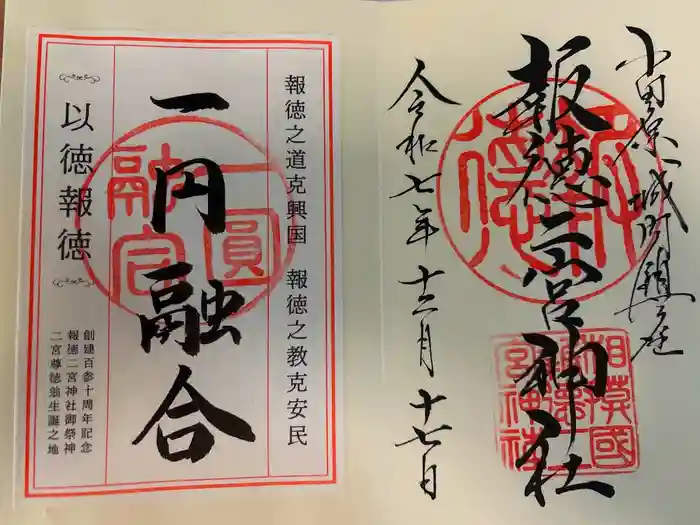 小田原城内鎮座
報徳二宮神社
令和七年十二月十七日
報徳之道克興国 報徳之教克安民
一円融合
一圓
融合
以徳報徳
創建百参十周年記念
報徳二宮神社御祭神
二宮尊徳翁生誕之地